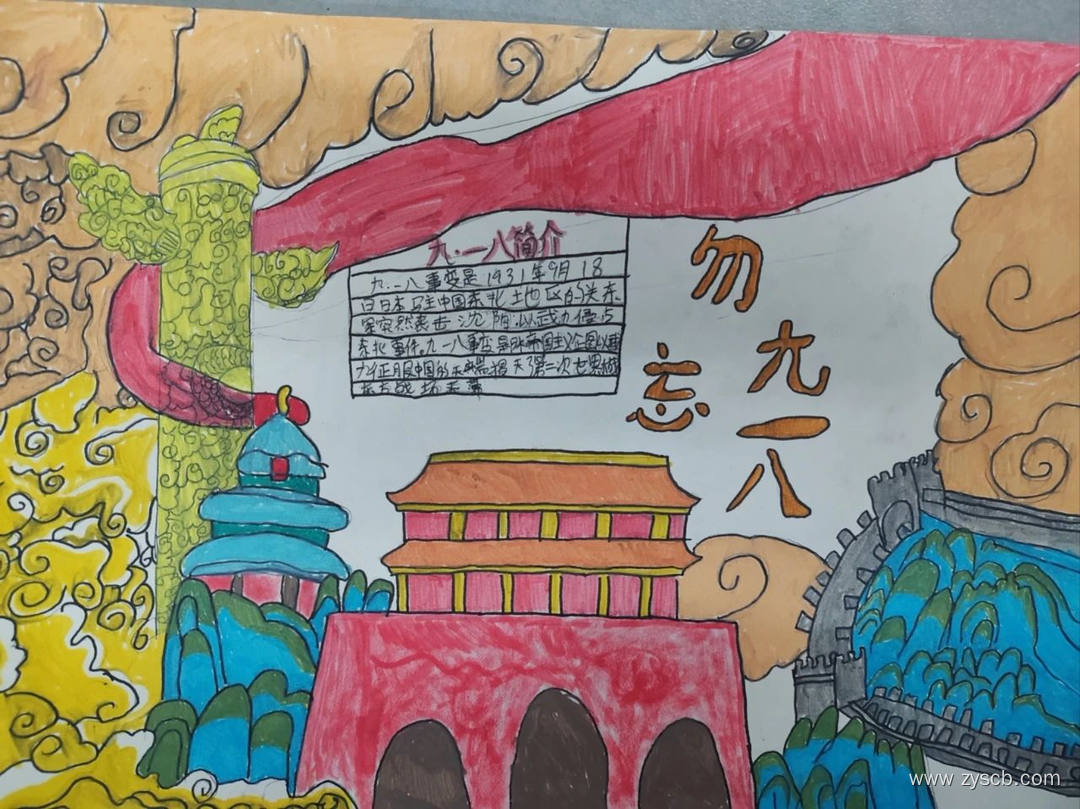 九·一八简介
九.一八事变是1931年9月18
日日本驻中国东北地区的关东
军突然袭击沈阳以武力侵占
东北事件。九一八事变是日本帝国主义企图以武
力征服中国的
第二次世界
东方战场
勿
忘
九
一
八
www.zyscb.com